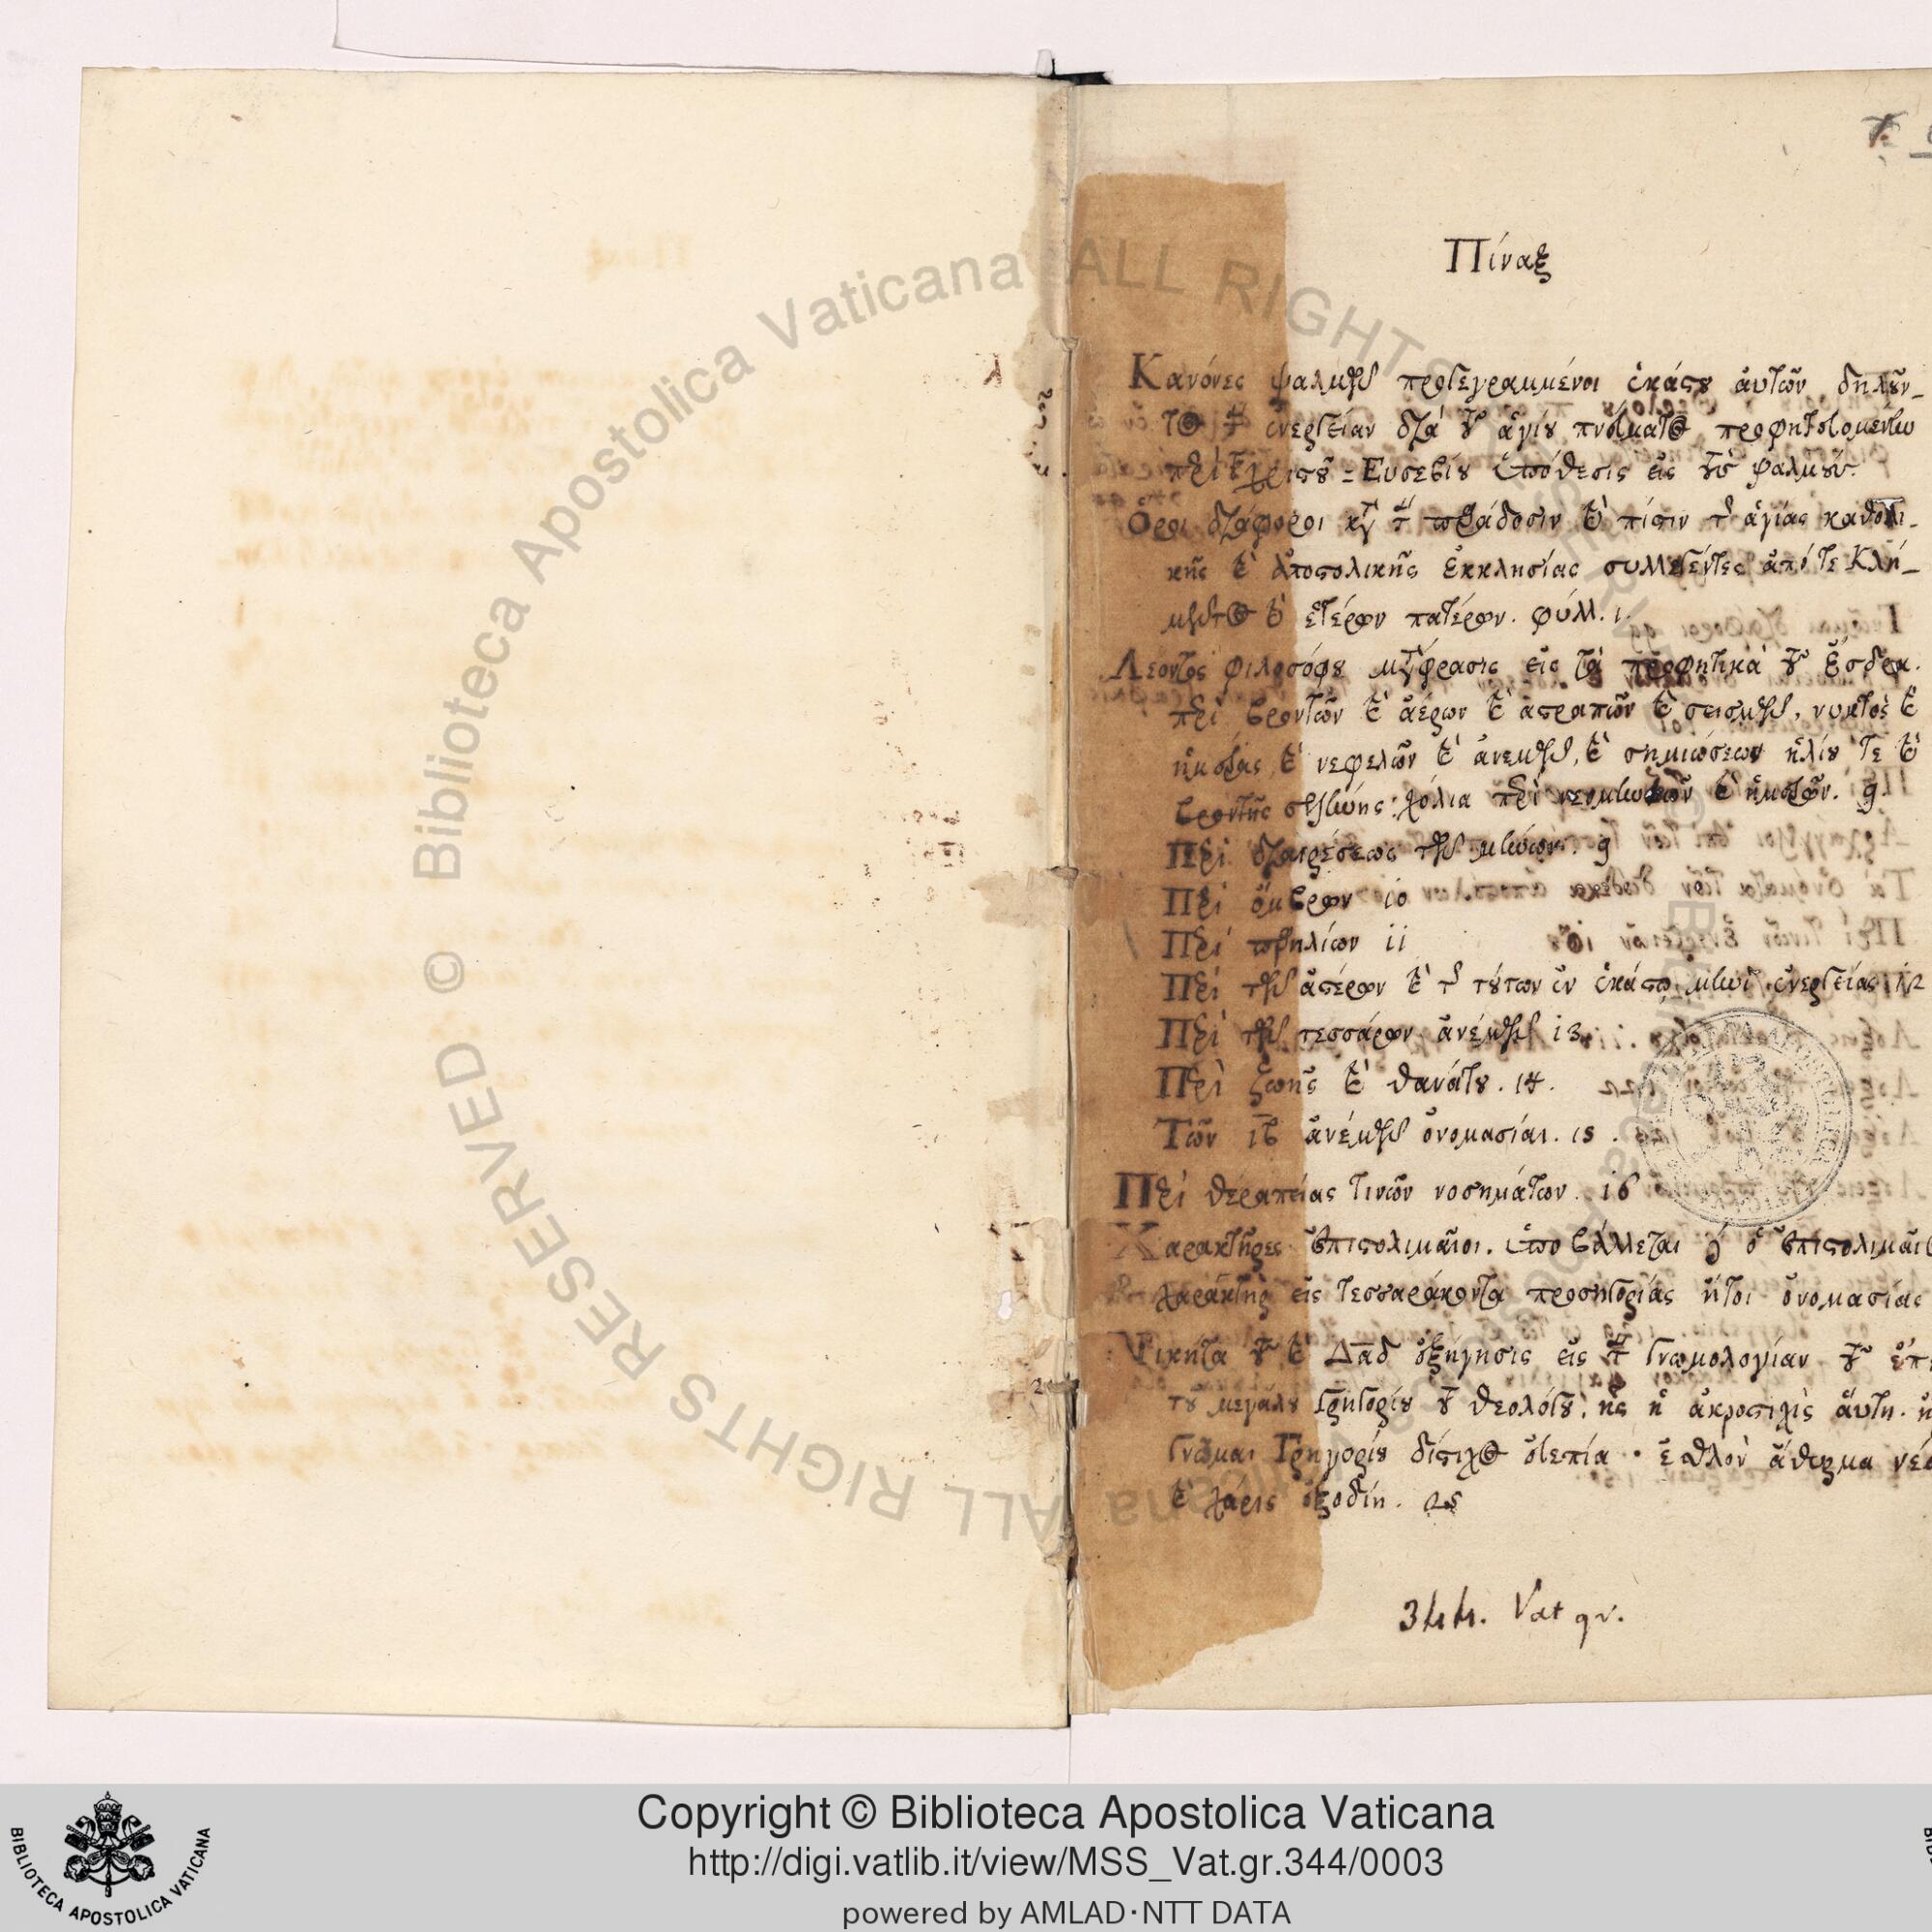 Πίναξ
Κανόνες ψαλμῶν προγεγραμμένοι ἑκάστου αὐτῶν δηλοῦν-
τος τὴν ἐνέργειαν διὰ τοῦ ἁγίου πνεύματος προφητευομένην
περὶ Χριστοῦ - Εὐσεβίου ὑπόθεσις εἰς τοὺς ψαλμούς.
Ὅροι διάφοροι κατὰ τὴν παράδοσιν καὶ πίστιν τῆς ἁγίας καθολι-
κῆς καὶ ἀποστολικῆς ἐκκλησίας συλλεγέντες ἀπό τε Κλή-
μεντος καὶ ἑτέρων πατέρων. φύλλ. 1.
Λέοντος φιλοσόφου μετάφρασις εἰς τὰ προφητικὰ τοῦ Ἔσδρα.
περὶ βροντῶν καὶ ἀέρων καὶ ἀστραπῶν καὶ σεισμῶν, νυκτὸς καὶ
ἡμέρας, καὶ νεφελῶν καὶ ἀνέμων, καὶ σημιώσεων ἡλίου τε καὶ
βροντῆς σελήνης: σχόλια περὶ καὶ ἡμερῶν. 9.
Περὶ διαιρέσεως τῶν μηνῶν. 9
Περὶ ὄμβρων 10
Περὶ παρηλίων 11
Περὶ τῶν ἀστέρων καὶ τῆς τούτων ἐν ἑκάστῳ μηνὶ ἐνεργείας 12
Περὶ τῶν τεσσάρων ἀνέμων 13
Περὶ ζωῆς καὶ θανάτου. 14.
Τῶν ιβ ἀνέμων ὀνομασίαι. 15.
Περὶ θεραπείας τινῶν νοσημάτων. 16
Χαρακτῆρες ἐπιστολιμαῖοι. ὑποβάλλεται ὁ ἐπιστολιμαῖο
χαρακτὴρ εἰς τεσσαράκοντα προσηγορίας ἤτοι ὀνομασίας
Νικήτα τοῦ καὶ Δαδ ἐξήγησις εἰς τὴν Γνωμολογίαν τοῦ
τοῦ μεγάλου Γρηγορίου τοῦ θεολόγου, ἧς ἡ ἀκροστιχὶς αὕτη.
Γνῶμαι Γρηγορίου δίστιχος εὐεπία · ἐσθλὸν ἄθυρμα νέ
καὶ χάρις ἐξοδίη. 25
344. Vat gr.
Copyright © Biblioteca Apostolica Vaticana
http://digi.vatlib.it/view/MSS_Vat.gr.344/0003
powered by AMLAD·NTT DATA
BIBLIOTECA APOSTOLICA VATICANA
© Biblioteca Apostolica Vaticana ALL RIGHTS RESERVED